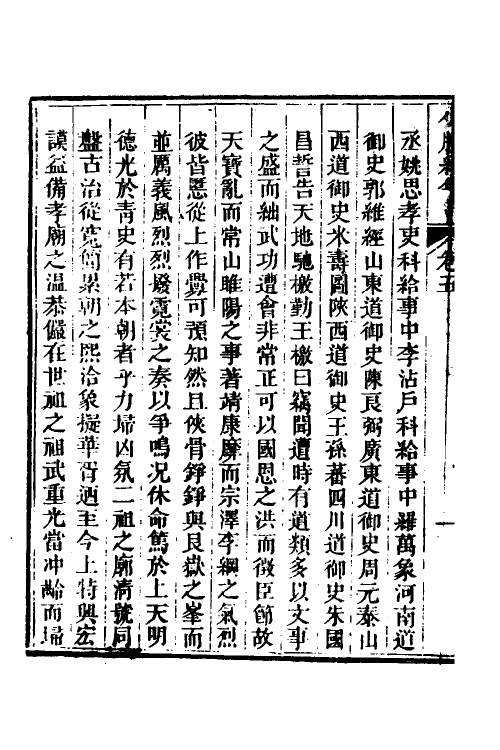 卷五
丞姚思孝吏科給事中李沾戶科給事中羅萬象河南道
御史郭維經山東道御史陳良弼廣東道御史周元泰山
西道御史米壽圖陝西道御史王孫蕃四川道御史朱國
昌誓告天地馳檄勤王檄曰竊聞遭時有道類多以文事
之盛而紬武功遭會非常正可以國恩之洪而徵臣節故
天寶亂而常山睢陽之事著靖康靡而宗澤李綱之氣烈
彼皆慝從上作釁可預知然且俠骨錚錚與艮嶽之峯而
並厲義風烈烈墢霓裳之奏以爭鳴况休命篤於上天明
德光於靑史有若本朝者乎力埽凶氛二祖之廓淸號同
盤古治從寬簡累朝之熙洽象擬華胥迺至今上特與宏
謨益備孝廟之溫恭儼在世祖之祖武重光當冲齡而埽